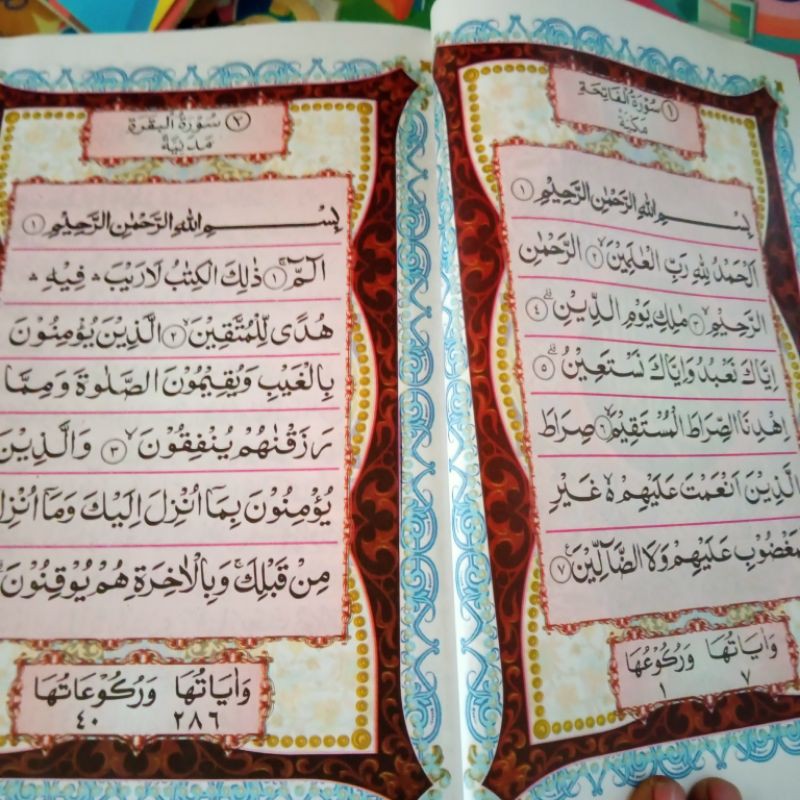 ١ سُوْرَةُ الْفَاتِحَةِ
مَكِّيَّةٌ
بِسْمِ اللهِ الرَّحْمٰنِ الرَّحِيْمِ ١
اَلْحَمْدُ لِلّٰهِ رَبِّ الْعٰلَمِيْنَ ۙ ٢ الرَّحْمٰنِ
الرَّحِيْمِ ۙ ٣ مٰلِكِ يَوْمِ الدِّيْنِ ۗ ٤
اِيَّاكَ نَعْبُدُ وَاِيَّاكَ نَسْتَعِيْنُ ۗ ٥
اِهْدِنَا الصِّرَاطَ الْمُسْتَقِيْمَ ۙ ٦ صِرَاطَ
الَّذِيْنَ اَنْعَمْتَ عَلَيْهِمْ ەۙ غَيْرِ
مَغْضُوْبِ عَلَيْهِمْ وَلَا الضَّآلِّيْنَ ۧ ٧
وَاٰيَاتُهَا وَرُكُوْعُهَا
٧ ١
٢ سُوْرَةُ الْبَقَرَةِ
مَدَنِيَّةٌ
بِسْمِ اللهِ الرَّحْمٰنِ الرَّحِيْمِ ١
الۤمّۤ ۚ ١ ذٰلِكَ الْكِتٰبُ لَا رَيْبَ ۛ فِيْهِ ۛ
هُدًى لِّلْمُتَّقِيْنَ ۙ ٢ الَّذِيْنَ يُؤْمِنُوْنَ
بِالْغَيْبِ وَيُقِيْمُوْنَ الصَّلٰوةَ وَمِمَّا
رَزَقْنٰهُمْ يُنْفِقُوْنَ ۙ ٣ وَالَّذِيْنَ
يُؤْمِنُوْنَ بِمَآ اُنْزِلَ اِلَيْكَ وَمَآ اُنْزِلَ
مِنْ قَبْلِكَ ۚ وَبِالْاٰخِرَةِ هُمْ يُوْقِنُوْنَ
وَاٰيَاتُهَا وَرُكُوْعَاتُهَا
٢٨٦ ٤٠